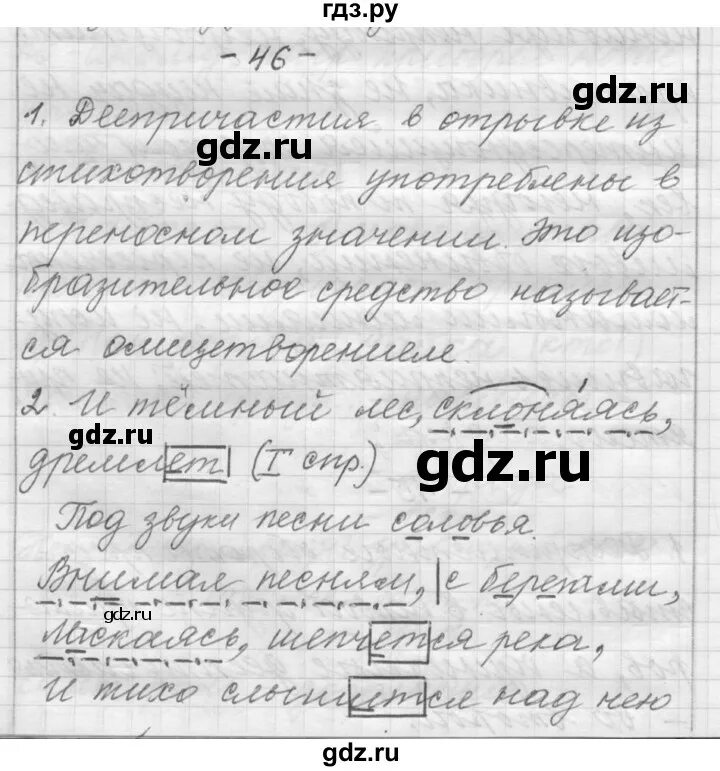 гдз.ру
- 46 -
1. Деепричастия в отрывке из
gdz.ru
gdz.ru
стихотворения употреблены в
переносном значении. Это изо-
бразительное средство называет-
ся олицетворением.
2. И тёмный лес, склоняясь,
gdz.ru
gdz.ru
дремлет (I спр.)
Под звуки песни соловья.
Внимая песням, с берегами,
gdz.ru
Ласкаясь, шепчется река,
И тихо слышится над нею
gdz.ru
gdz.ru